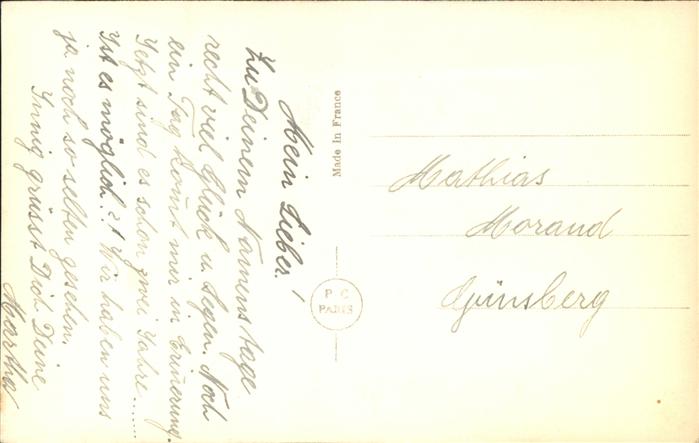 Mein Lieber!
Zu Deinem Namenstage
recht viel Glück u. Segen. Noch
ein Tag kom̅t mir in Erin̅erung.
Jetzt sind es schon zwei Jahre.....
Ist es möglich?! Wir haben uns
ja noch so selten gesehen.
Innig grüsst Dich Deine
Martha
Made In France
P C
PARIS
Mathias
Morand
Günsberg